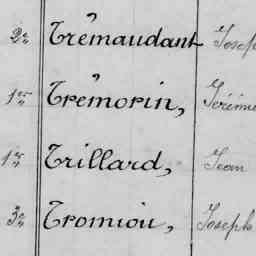 2e Trêmaudant Joseph
1er Trêmorin, Jérémie
1er Trillard, Jean
3e Tromiou, Joseph